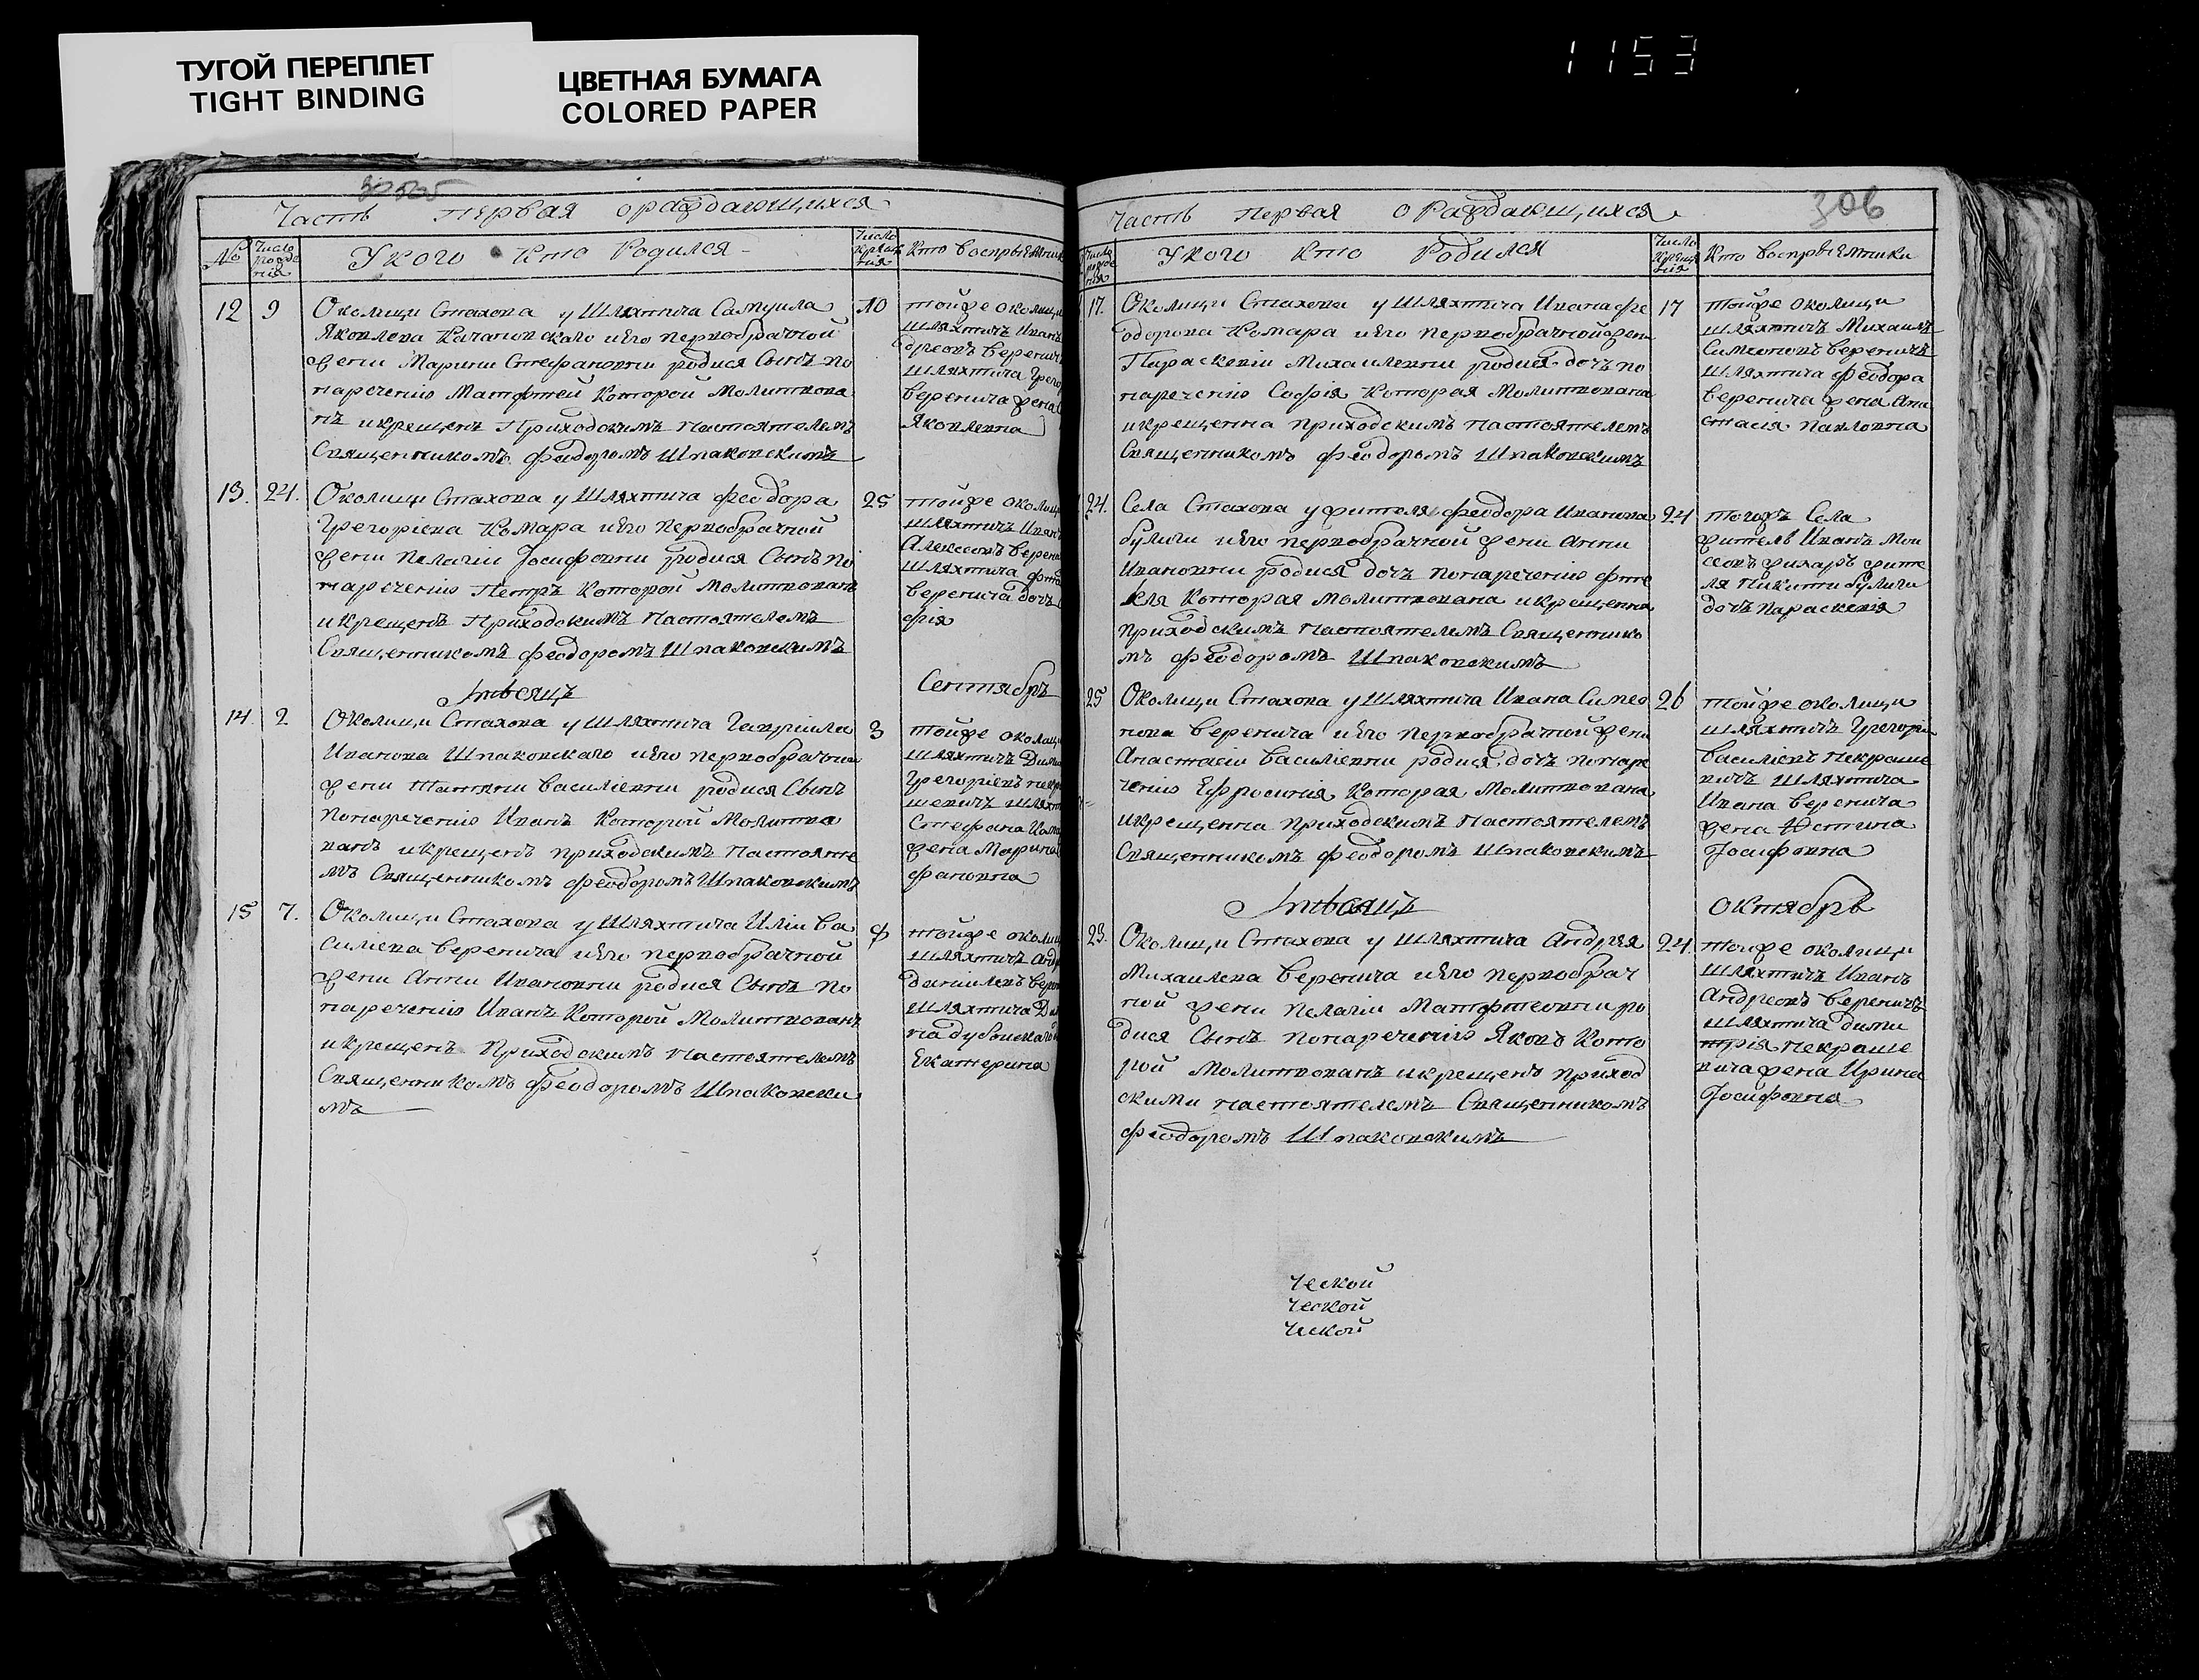 ТУГОЙ ПЕРЕПЛЕТ
TIGHT BINDING
ЦВЕТНАЯ БУМАГА
COLORED PAPER
1153
Часть первая о раждающихся
№ Число рожде нія У кого кто Родился Число крещенія Кто воспріемник
12 9 Околици Стахова у Шляхтича Самуила
Яковлева Качановскаго и его первобрачной
жени Марини Стефановни родися Сынъ по
нареченію Матфтей Которой Молитвова
нъ и крещенъ Приходскимъ Настоятелемъ
Священникомъ Феодоромъ Шпаковскимъ
10 тойже околици
шляхтичъ Иван
дреовъ Веренич
шляхтича Григо
Веренича жена
Яковлевна
13. 24. Околици Стахова у Шляхтича Феодора
Григоріева Комара и его первобрачной
жени Пелагіи Іосифовни родися Сынъ по
нареченію Петръ Которой Молитвованъ
и крещенъ Приходскимъ Настоятелемъ
Священникомъ Феодоромъ Шпаковскимъ
25 тойже околиц
шляхтичъ Иван
Алексеовъ Верени
шляхтича
Веренича дочъ
фія
Мѣсяцъ Сентябръ
14. 2 Околици Стахова у Шляхтича Гавріила
Иванова Шпаковскаго и его первобрачни
жени Татяни Василіевни родися Сынъ
по нареченію Иванъ Которой Молитво
ванъ и крещенъ приходскимъ Настояте
мъ Священникомъ Феодоромъ Шпаковскимъ
3 тойже околиц
шляхтичъ Дими
Григоріевъ некра
шевичъ шляхт
Стефана Кома
жена Марина
фановна
15 7. Околици Стахова у Шляхтича Иліи Ва
силіева Веренича и его первобрачной
жени Анни Ивановни родися Сынъ по
нареченію Иванъ Которой Молитвованъ
и крещенъ Приходскимъ Настоятелемъ
Священникомъ Феодоромъ Шпаковски
мъ
тойже околиц
шляхтичъ Анд
Даниілевъ Вере
шляхтича
на Дубоискаго
Екатерина
Часть первая о Раждающихся
306
Число рожде нія У кого кто Родился Число крещенія Кто воспріемники
17. Околици Стахова у Шляхтича Ивана Фе
одорова Комара и его первобрачной жени
Параскевіи Михаилевни родися дочъ по
нареченію Софія Которая Молитвована
и крещенна приходскимъ Настоятелемъ
Священникомъ Феодоромъ Шпаковскимъ
17 тойже околици
шляхтичъ Михаилъ
Симеоновъ Вереничъ
шляхтича Феодора
Веренича жена Ана
стасія Павловна
24. Села Стахова у жителя Феодора Иванова
булиги и его первобрачной жени Анни
Ивановни родися дочъ по нареченію Фте
кля Которая Молитвована и крещенна
Приходскимъ Настоятелемъ Священнико
мъ Феодоромъ Шпаковскимъ
24 тогожъ Села
житель Иванъ Мои
сеовъ жихаръ жите
ля Никити булиги
дочъ Параскевія
25 Околици Стахова у Шляхтича Ивана Симео
нова Веренича и его первобрачной жени
Анастасіи Василіевни родися дочъ по наре
ченію Ефросинія Которая Молитвована
и крещенна Приходскимъ Настоятелемъ
Священникомъ Феодоромъ Шпаковскимъ
26 тойже околици
шляхтичъ Григорій
Василіевъ Некраше
вичъ шляхтича
Ивана Веренича
жена Юстина
Іосифовна
Мѣсяцъ Октябръ
23. Околици Стахова у Шляхтича Андрея
Михаилева Веренича и его первобрач
ной жени Пелагіи Матфтеовни ро
дися Сынъ по нареченію Яковъ Кото
рой Молитвованъ и крещенъ приход
скими настоятелемъ Священникомъ
Феодоромъ Шпаковскимъ
24. тойже околици
шляхтичъ Иванъ
Андреовъ Вереничъ
шляхтича Дими
трія Некраше
вича жена Ирина
Іосифовна
ческой
ческой
ческой